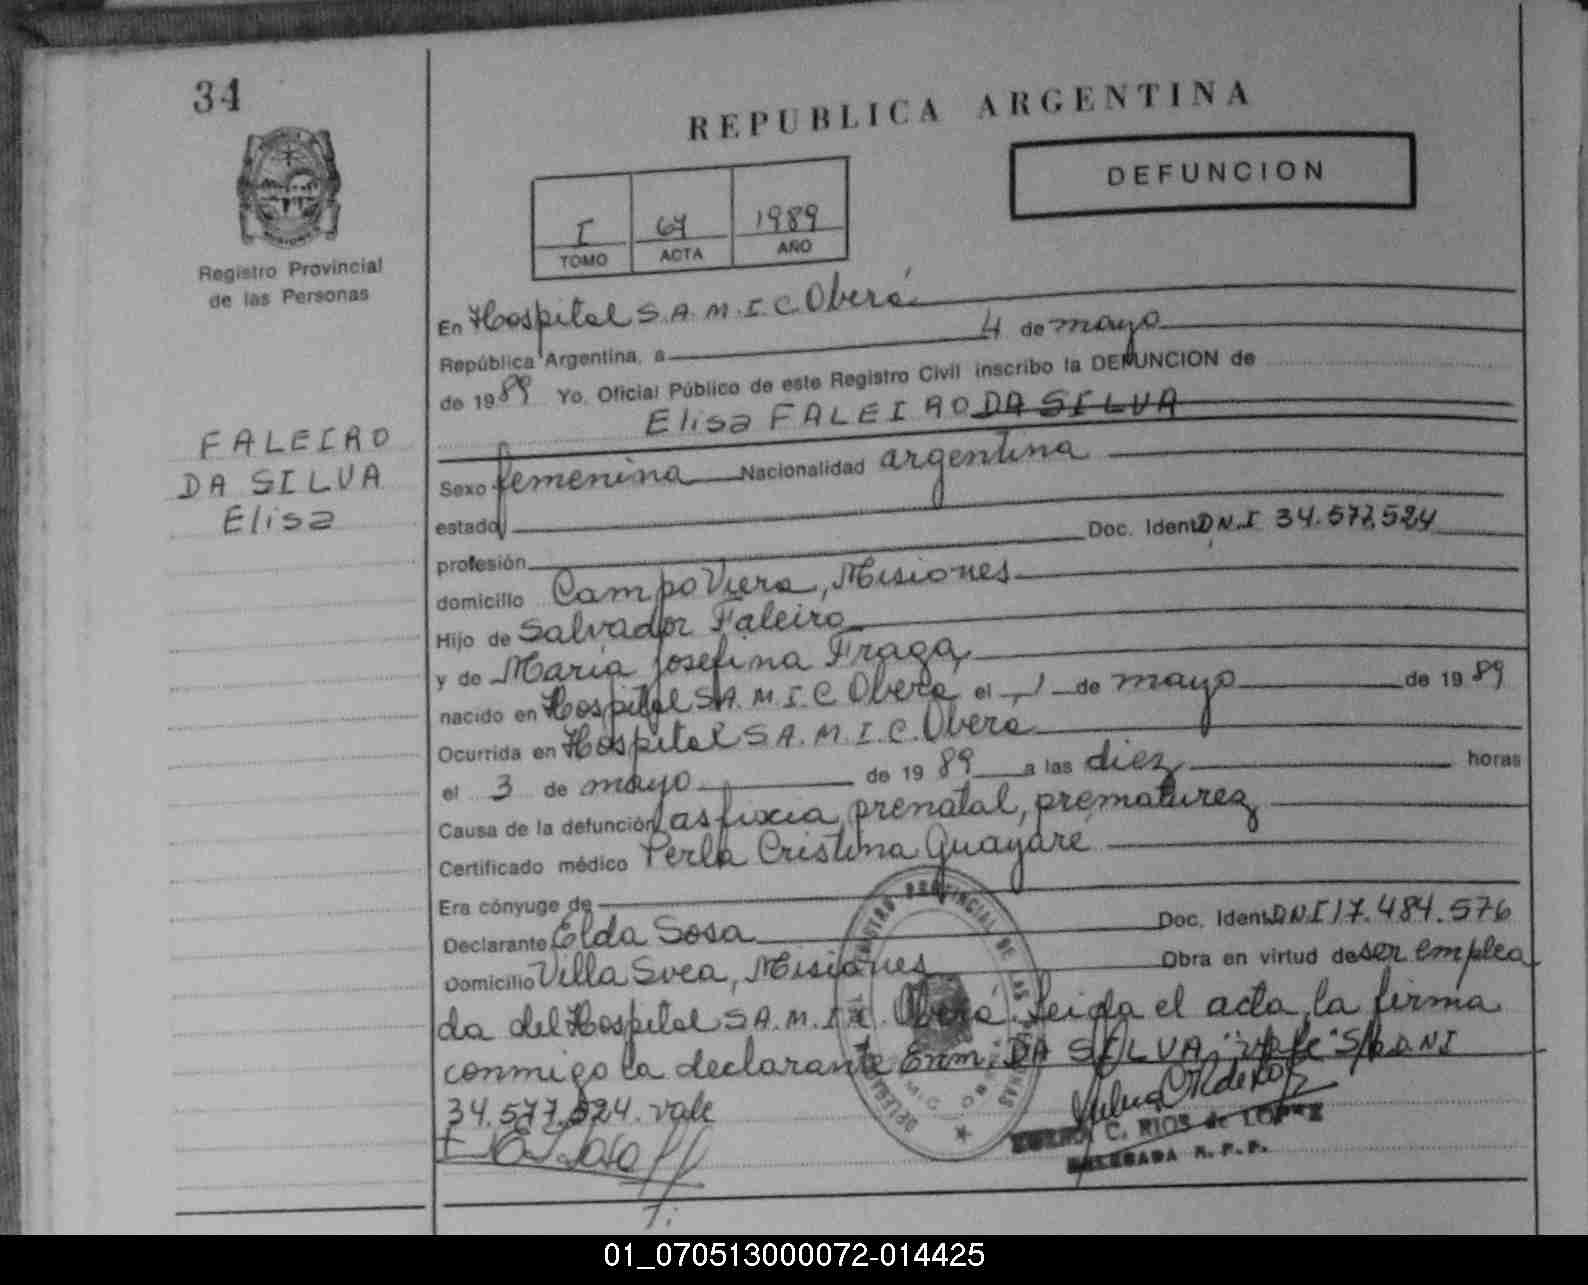 34
REPUBLICA ARGENTINA
DEFUNCION
I 67 1989
TOMO ACTA AÑO
Registro Provincial
de las Personas
En Hospital S.A.M.I.C. Oberá
República Argentina, a 4 de mayo
de 1989 Yo, Oficial Público de este Registro Civil inscribo la DEFUNCION de
Elisa FALEIRO DA SILVA
FALEIRO
DA SILVA
Elisa
Sexo femenina Nacionalidad argentina
estado
Doc. Ident D.N.I 34.577.524
profesión
domicilio Campo Viera, Misiones
Hijo de Salvador Faleiro
y de María Josefina Fraga
nacido en Hospital S.A.M.I.C Oberá el 1 de mayo de 1989
Ocurrida en Hospital S.A.M.I.C. Oberá
el 3 de mayo de 1989 a las diez horas
Causa de la defunción asfixia prenatal, prematurez
Certificado médico Perla Cristina Guayaré
Era cónyuge de
Declarante Elda Sosa Doc. Ident DNI 17.484.576
Domicilio Villa Svea, Misiones Obra en virtud de ser emplea
da del Hospital S.A.M.I.C. Oberá. Leida el acta, la firma
conmigo la declarante Enm: DA SILVA "vale" S/b DNI
34.577.524. vale
REGISTRO PROVINCIAL DE LAS PERSONAS
C. RIOS de LOPEZ
DELEGADA R.P.P.
01_070513000072-014425